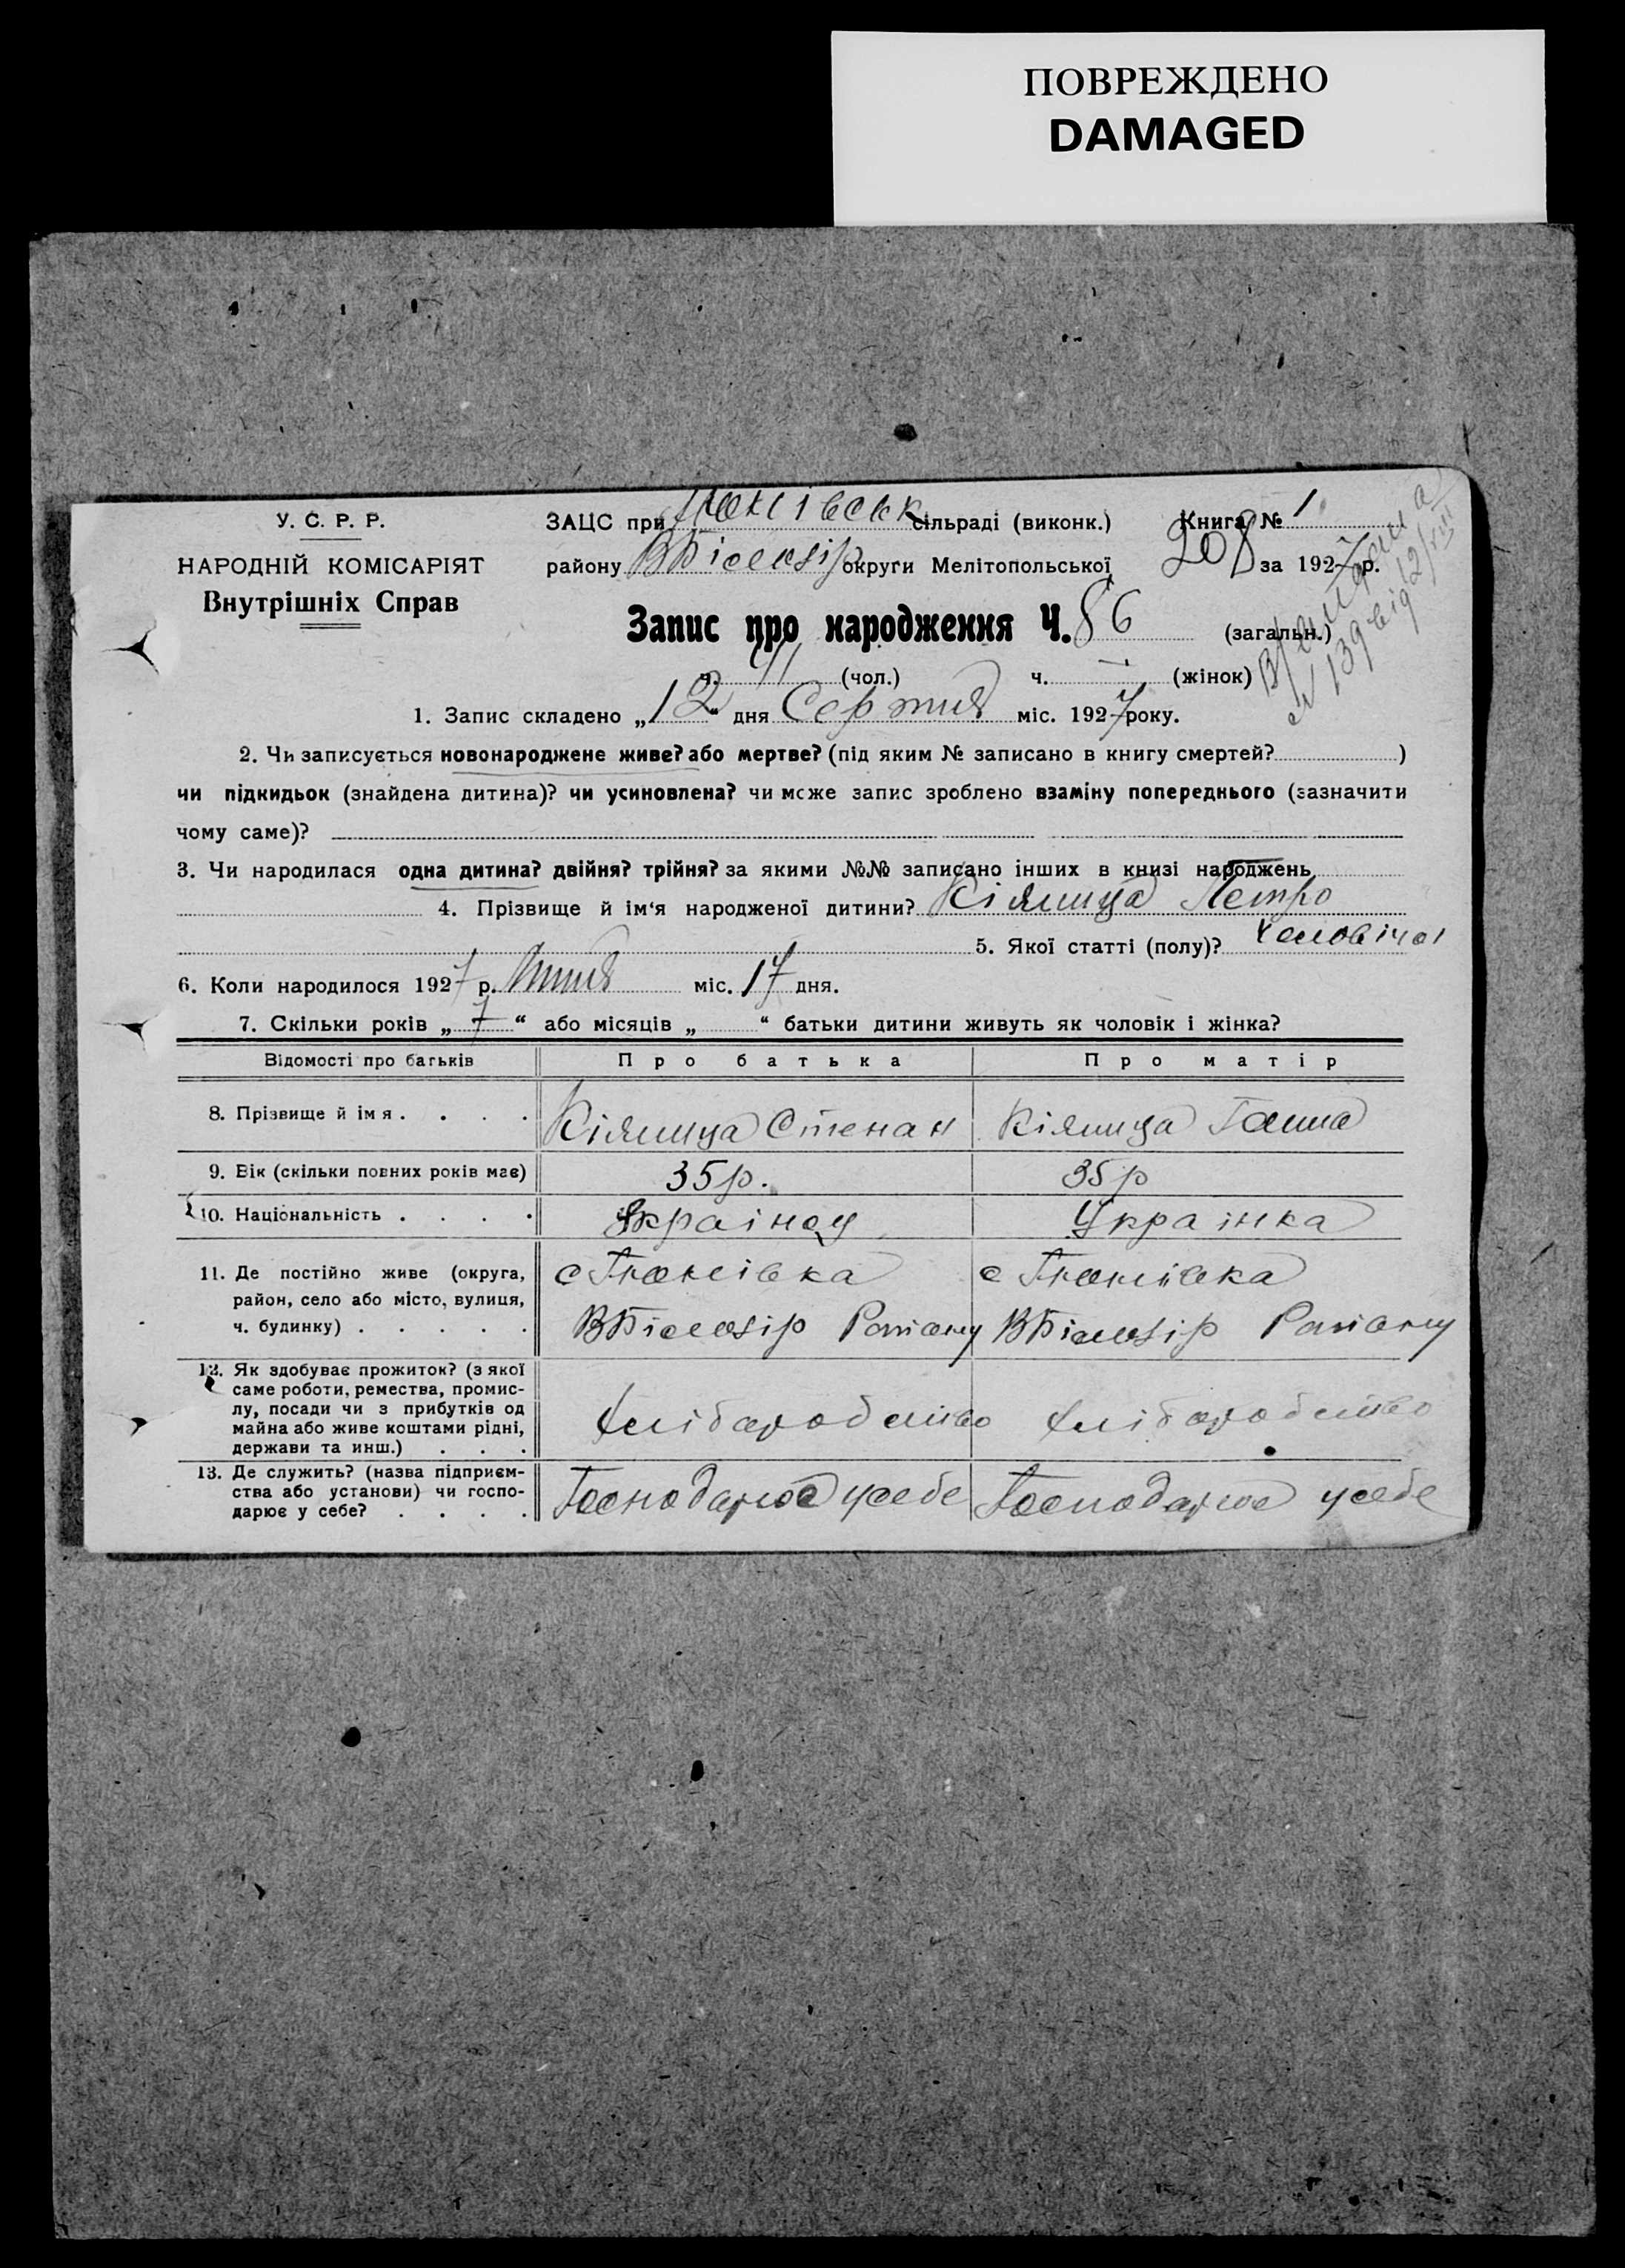 ПОВРЕЖДЕНО
DAMAGED
У. С. Р. Р.
НАРОДНІЙ КОМІСАРІЯТ
Внутрішніх Справ
ЗАЦС при сільраді (виконк.) Книга № 1
району ВБілозір округи Мелітопольської 208 за 1927 р.
Запис про народження Ч. 86 (загальн.)
ч. 41 (чол.) ч. — (жінок)
№ 139 від 12/VIII
1. Запис складено „12“ дня Серпня міс. 1927 року.
2. Чи записується новонароджене живе? або мертве? (під яким № записано в книгу смертей? )
чи підкидьок (знайдена дитина)? чи усиновлена? чи може запис зроблено взаміну попереднього (зазначити
чому саме)?
3. Чи народилася одна дитина? двійня? трійня? за якими №№ записано інших в книзі народжень
4. Прізвище й ім‘я народженої дитини? Кіяшица Петро
5. Якої статті (полу)? Чоловічої
6. Коли народилося 1927 р. Липня міс. 17 дня.
7. Скільки років „7“ або місяців „ “ батьки дитини живуть як чоловік і жінка?
Відомості про батьків Про батька Про матір
8. Прізвище й імя . . . . Кіяшица Степан Кіяшица Ганна
9. Вік (скільки повних років має) 35р. 35р
10. Національність . . . . Українец Українка
11. Де постійно живе (округа,
район, село або місто, вулиця,
ч. будинку) . . . . .
ВБілозір Району ВБілозір Району
12. Як здобуває прожиток? (з якої
саме роботи, ремества, промис-
лу, посади чи з прибутків од
майна або живе коштами рідні,
держави та инш.) . . .
хліборобство хліборобство
13. Де служить? (назва підприєм-
ства або установи) чи госпо-
дарює у себе? . . . .
Господарює усебе Господарює усебе